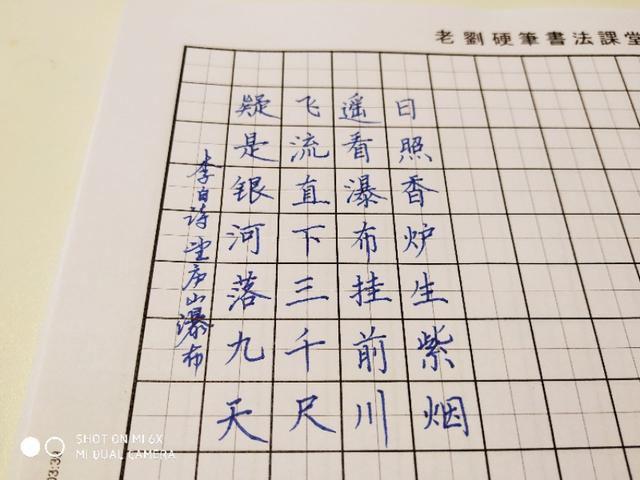 老劉硬筆書法課堂
日照香炉生紫烟
遥看瀑布挂前川
飞流直下三千尺
疑是银河落九天
李白诗望庐山瀑布
SHOT ON MI 6X
MI DUAL CAMERA